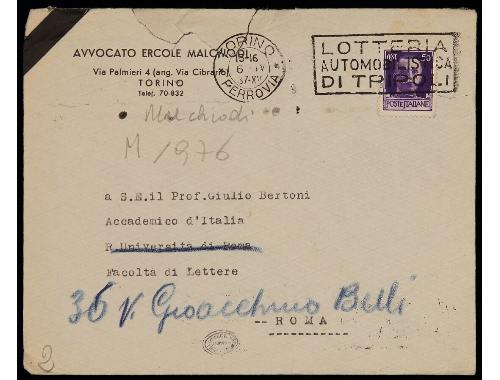 AVVOCATO ERCOLE
Via Palmieri 4 (ang. Via Cibrario)
TORINO
Telef. 70-832
TORINO
FERROVIA
LOTTERIA
AUTOMOBILISTICA
DI TRIPOLI
POSTE ITALIANE
Malchiodi
M/976
a S.E.il Prof.Giulio Bertoni
Accademico d'Italia
R.Università di Roma
Facoltà di Lettere
36 V. Gioacchino Belli
-- R O M A
2